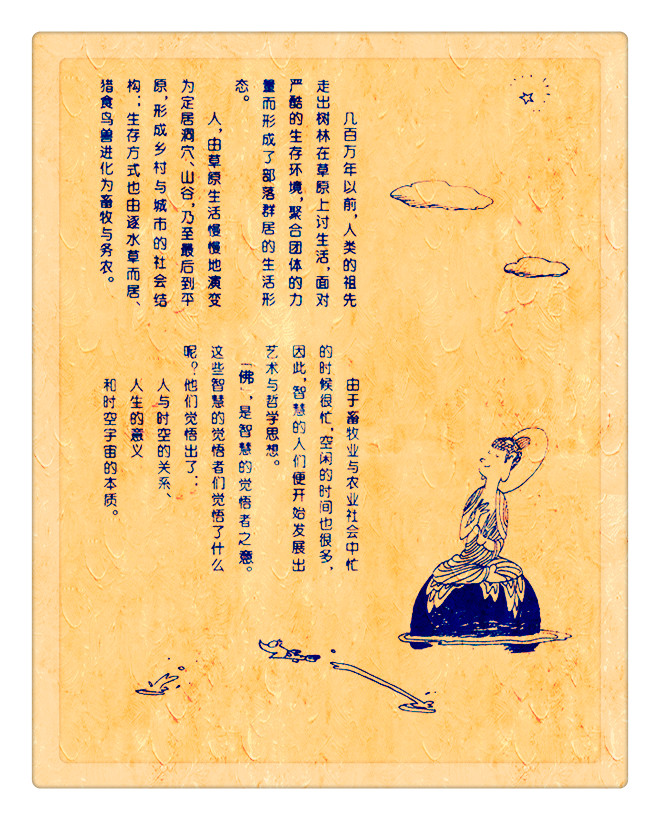 几百万年以前,人类的祖先
走出树林在草原上讨生活,面对
严酷的生存环境,聚合团体的力
量而形成了部落群居的生活形
态。
人,由草原生活慢慢地演变
为定居洞穴、山谷,乃至最后到平
原,形成乡村与城市的社会结
构;生存方式也由逐水草而居、
猎食鸟兽进化为畜牧与务农。
由于畜牧业与农业社会中忙
的时候很忙,空闲的时间也很多,
因此,智慧的人们便开始发展出
艺术与哲学思想。
「佛」,是智慧的觉悟者之意。
这些智慧的觉悟者们觉悟了什么
呢?他们觉悟出了:
人与时空的关系、
人生的意义
和时空宇宙的本质。